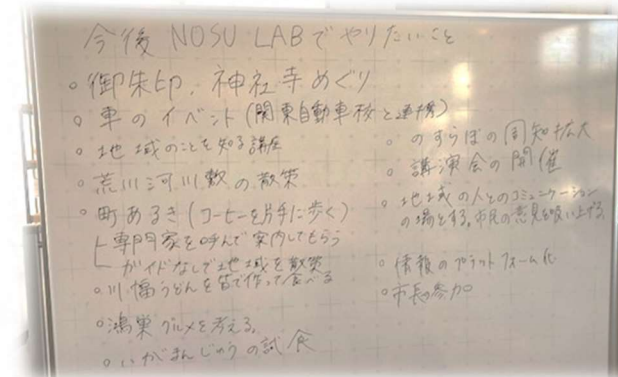 今後 NOSU LABでやりたいこと
○御朱印、神社寺めぐり
○車のイベント(関東自動車校と連携)
○地域のことを知る講座
○荒川河川敷の散策
○町あるき(コーヒーを片手に歩く)
├専門家を呼んで案内してもらう
└ガイドなしで地域を散策
○川幅うどんを皆で作って食べる
○鴻巣グルメを考える。
○いがまんじゅうの試食
○のすらぼの周知拡大
○講演会の開催
○地域の人とのコミュニケーション
の場とする。市民の意見を吸い上げる。
○情報のプラットフォーム化
○市長の参加